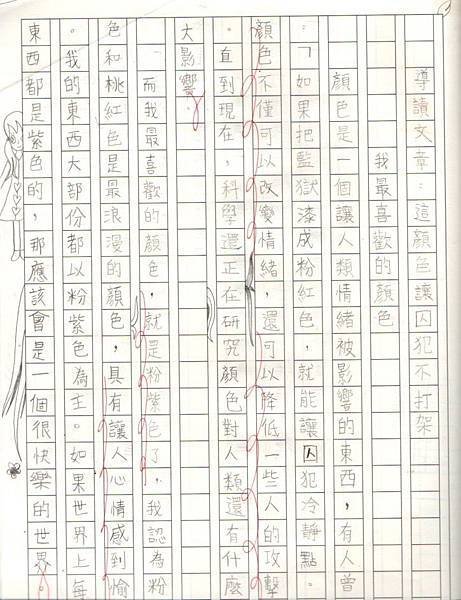 導讀文章：這顏色讓囚犯不打架
我最喜歡的顏色
顏色是一個讓人類情緒被影響的東西，有人曾
：「如果把監獄漆成粉紅色，就能讓囚犯冷靜點。
顏色不僅可以改變情緒，還可以降低一些人的攻擊
。直到現在，科學還正在研究顏色對人類還有什麼
大影響
而我最喜歡的顏色，就是粉紫色了，我認為粉
色和桃紅色是最浪漫的顏色，具有讓人心情感到愉
。我的東西大部份都以粉紫色為主。如果世界上每
東西都是紫色的，那應該會是一個很快樂的世界。